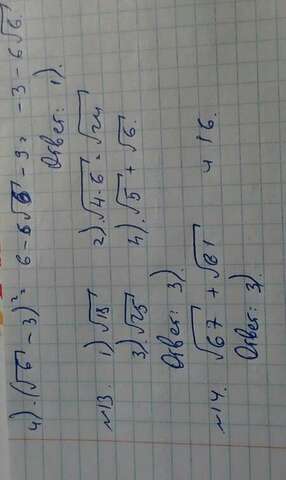 4). (√6 - 3)² = 6 - 6√6 - 9 = -3 - 6√6.
Ответ: 1).
№13. 1) √18 2). √4·6 = √24
3). √25 4). √5 + √6.
Ответ: 3).
№14. √67 + √61 и 16.
Ответ: 3).